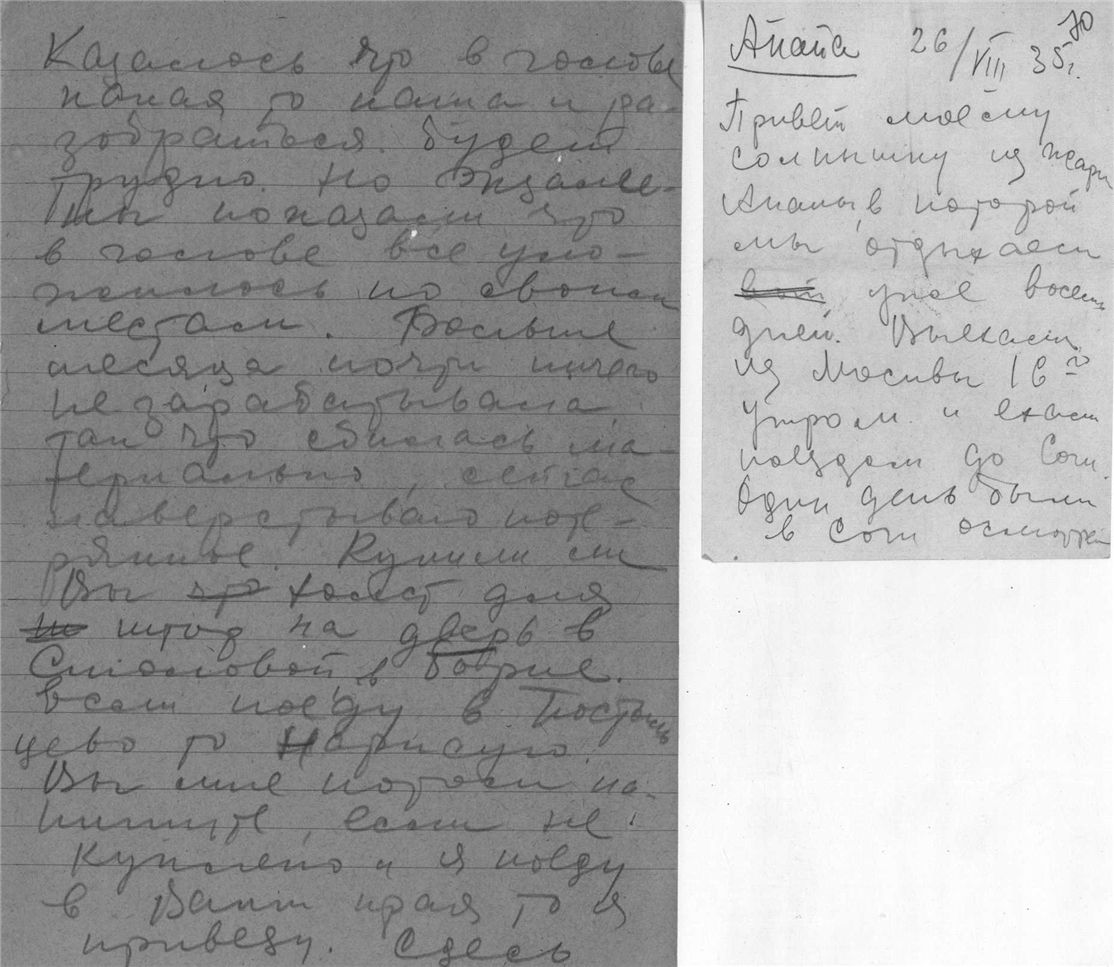 Казалось что в голове
какая то каша и ра-
зобраться будет
трудно. Но экзаме-
ны показали что
в голове все уло-
жилось по своим
местам. Больше
месяца почти ничего
не зарабатывала
так что сбилась ма-
териально, сейчас
наверстываю поте-
рянное. Купили ли
Вы что холст для
но штор на дверь в
Столовой в Бобрие.
если поеду в Постыш
цево то нарисую.
Вы мне потом на-
пишите, если не
куплено и я поеду
в Ваши края то я
привезу. Сдесь
70
Анапа 26/VIII 35г.
Привет моему
солнышку из жари
Анапы в которой
мы отдыхаем
уже восемь
дней. Выехали
из Москвы 16го
утром и ехали
поездом до Сочи
Один день были
в Сочи осмотрели